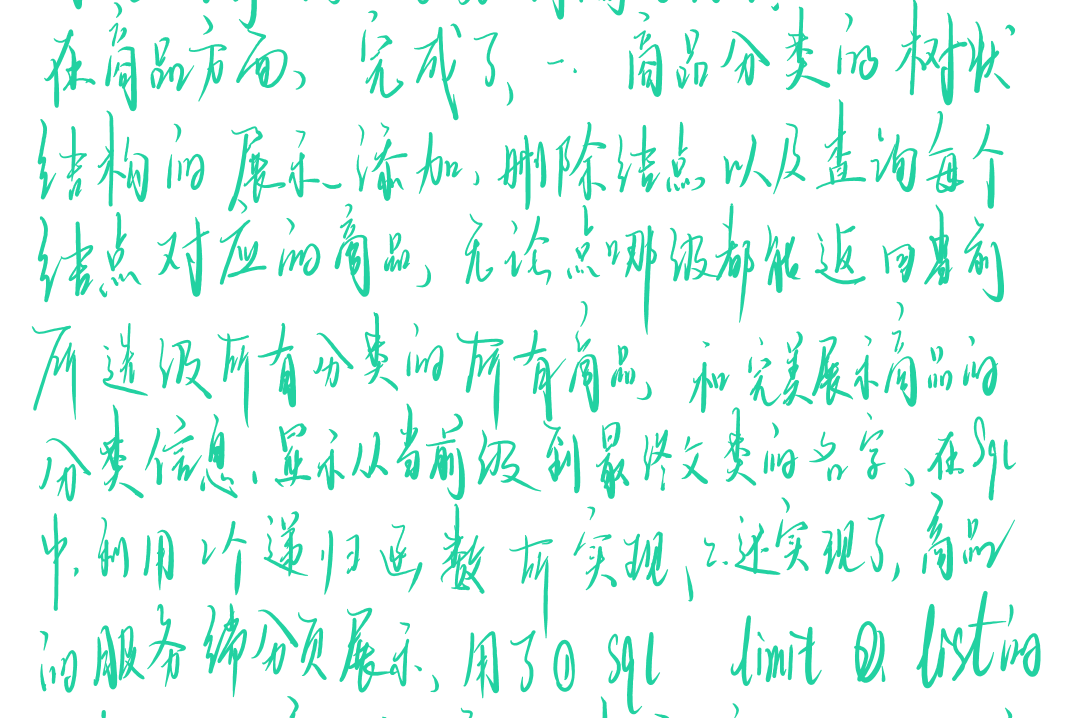 在商品方面、完成了，一. 商品分类的树状
结构的展示、添加、删除结点以及查询每个
结点对应的商品，无论点哪级都能返回当前
所选级所有分类的所有商品，和完美展示商品的
分类信息，显示从当前级到最终分类的名字、在sql
中，利用2个递归函数所实现，2.还实现了，商品
的服务端分页展示，用了① sql limit ② list的